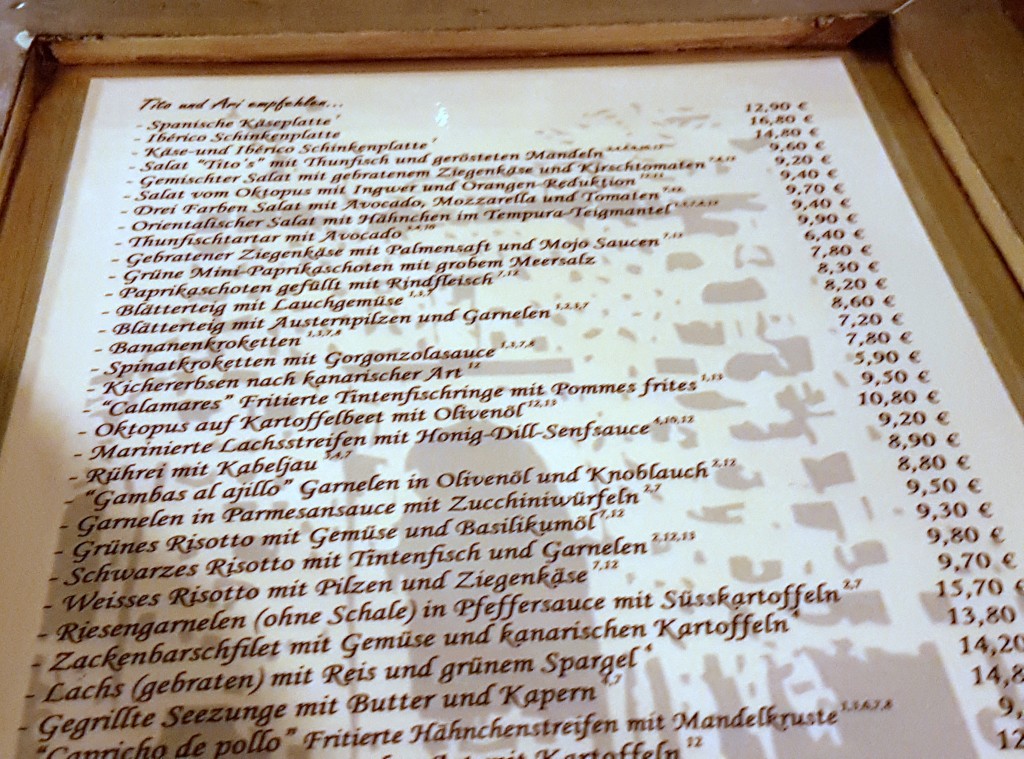 Tito und Ari empfehlen...
- Spanische Käseplatte 7 12,90 €
- Ibérico Schinkenplatte 16,80 €
- Käse-und Ibérico Schinkenplatte 7 14,80 €
- Salat "Tito's" mit Thunfisch und gerösteten Mandeln 9,60 €
- Gemischter Salat mit gebratenem Ziegenkäse und Kirschtomaten 9,20 €
- Salat vom Oktopus mit Ingwer und Orangen-Reduktion 9,40 €
- Drei Farben Salat mit Avocado, Mozzarella und Tomaten 9,70 €
- Orientalischer Salat mit Hähnchen im Tempura-Teigmantel 9,40 €
- Thunfischtartar mit Avocado 9,90 €
- Gebratener Ziegenkäse mit Palmensaft und Mojo Saucen 6,40 €
- Grüne Mini-Paprikaschoten mit grobem Meersalz 7,80 €
- Paprikaschoten gefüllt mit Rindfleisch 7,12 8,30 €
- Blätterteig mit Lauchgemüse 1,3,7 8,20 €
- Blätterteig mit Austernpilzen und Garnelen 1,2,3,7 8,60 €
- Bananenkroketten 1,3,7,8 7,20 €
- Spinatkroketten mit Gorgonzolasauce 1,3,7,8 7,80 €
- Kichererbsen nach kanarischer Art 12 5,90 €
- "Calamares" Fritierte Tintenfischringe mit Pommes frites 1,13 9,50 €
- Oktopus auf Kartoffelbeet mit Olivenöl 12,13 10,80 €
- Marinierte Lachsstreifen mit Honig-Dill-Senfsauce 4,10,12 9,20 €
- Rührei mit Kabeljau 3,4,7 8,90 €
- "Gambas al ajillo" Garnelen in Olivenöl und Knoblauch 2,12 8,80 €
- Garnelen in Parmesansauce mit Zucchiniwürfeln 2,7 9,50 €
- Grünes Risotto mit Gemüse und Basilikumöl 7,12 9,30 €
- Schwarzes Risotto mit Tintenfisch und Garnelen 2,12,13 9,80 €
- Weisses Risotto mit Pilzen und Ziegenkäse 7,12 9,70 €
- Riesengarnelen (ohne Schale) in Pfeffersauce mit Süsskartoffeln 2,7 15,70 €
- Zackenbarschfilet mit Gemüse und kanarischen Kartoffeln 4 13,80
- Lachs (gebraten) mit Reis und grünem Spargel 4 14,20
- Gegrillte Seezunge mit Butter und Kapern 4,7 14,8
- "Capricho de pollo" Fritierte Hähnchenstreifen mit Mandelkruste 1,3,6,7,8 9,
mit Kartoffeln 12 12